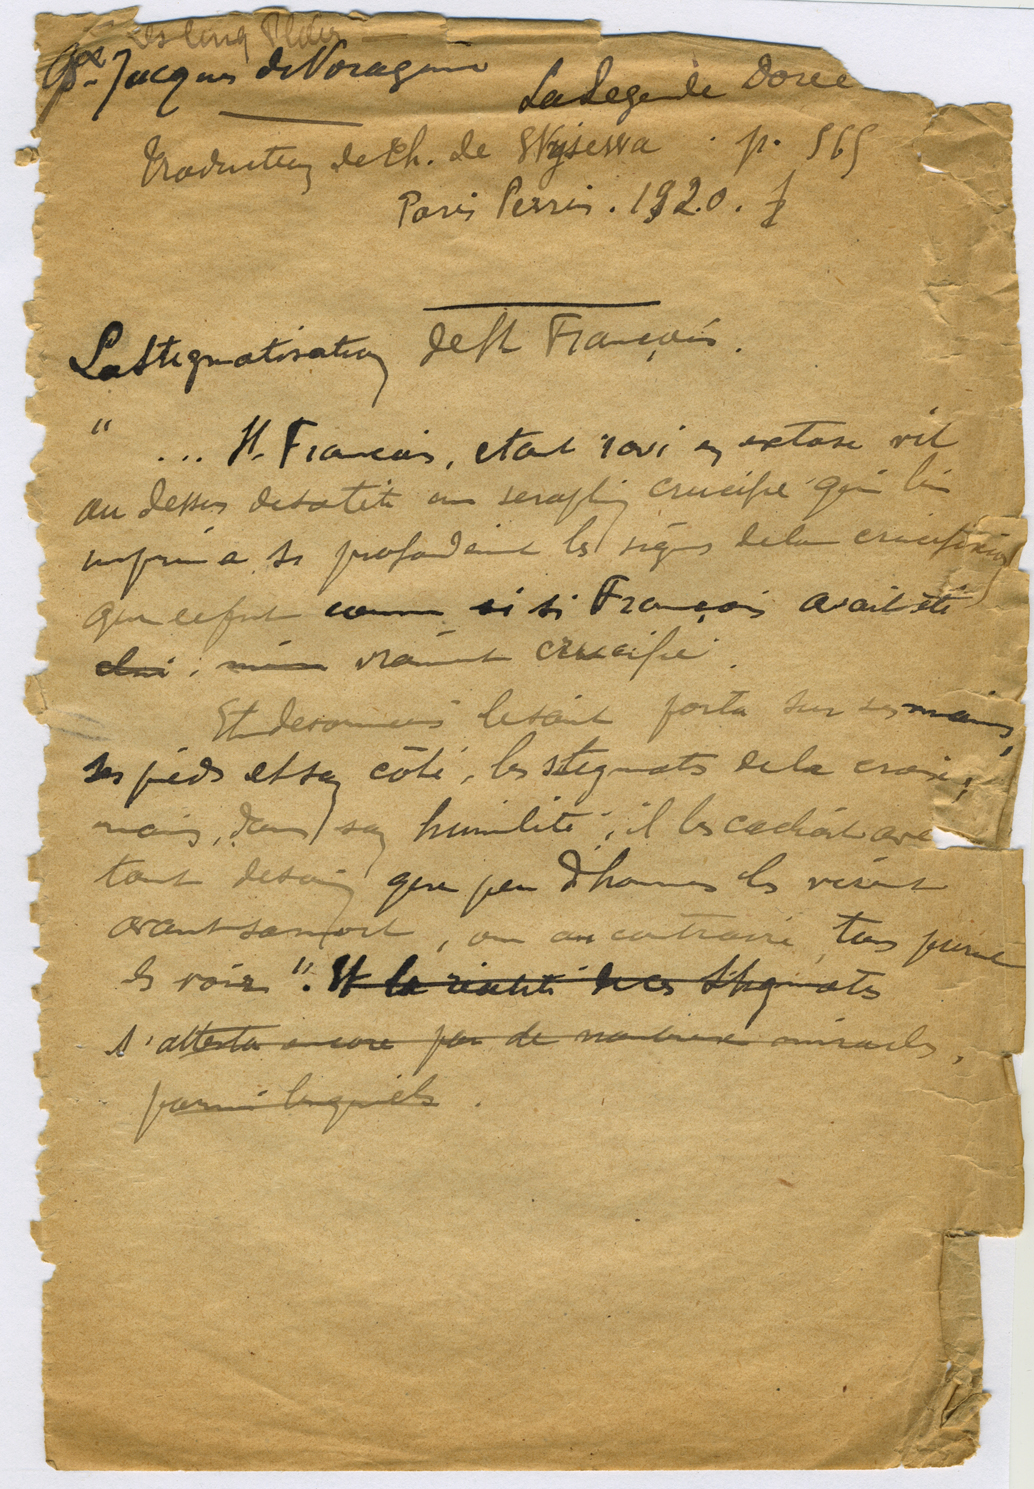 Les cinq Plaies
Jacques de Voragine
La Legende Doree
Traduction de Ch. de Wyzewa . p. 565
Paris Perrin . 1920 .
La Stigmatisation de St François .
" ... St. François, etant ravi en extase vit
au dessus de sa tête un seraphin crucifié qui lui
imprima si profondément les signes de la crucifixion
que ce fut comme si si François avait été
lui : même vraiment crucifié .
Et desormais le saint porta sur ses mains,
ses pieds et son côté, les stigmats de la croix ;
mais, dans son humilité ; il les cachait avec
tant de soin que peu d'hommes les virent
avant sa mort , ou au contraire tous purent
les voir ". Et la réalité de ces Stigmates
s'attesta encore par de nombreux miracles,
parmi lesquels .